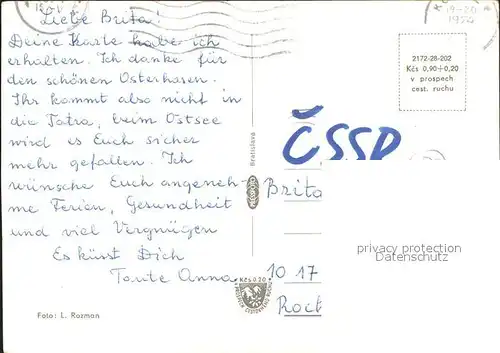 Liebe Brita!
Deine Karte habe ich
erhalten. Ich danke für
den schönen Osterhasen.
Ihr kommt also nicht in
die Tatra, beim Ostsee
wird es Euch sicher
mehr gefallen. Ich
wünsche Euch angeneh-
me Ferien, Gesundheit
und viel Vergnügen
Es küsst Dich
Tante Anna
Foto: L. Rozman
Bratislava
Kčs 0,20
2172-28-202
Kčs 0,90+0,20
v prospech
cest. ruchu
ČSSR
Brita
privacy protection
Datenschutz
10 17
Rock